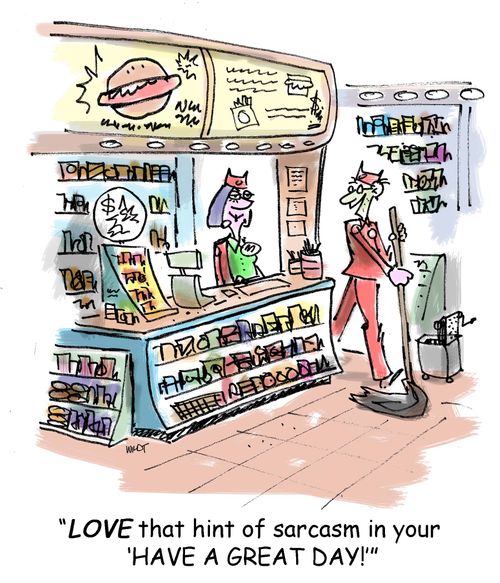 $
WKDT
“LOVE that hint of sarcasm in your
‘HAVE A GREAT DAY!’”